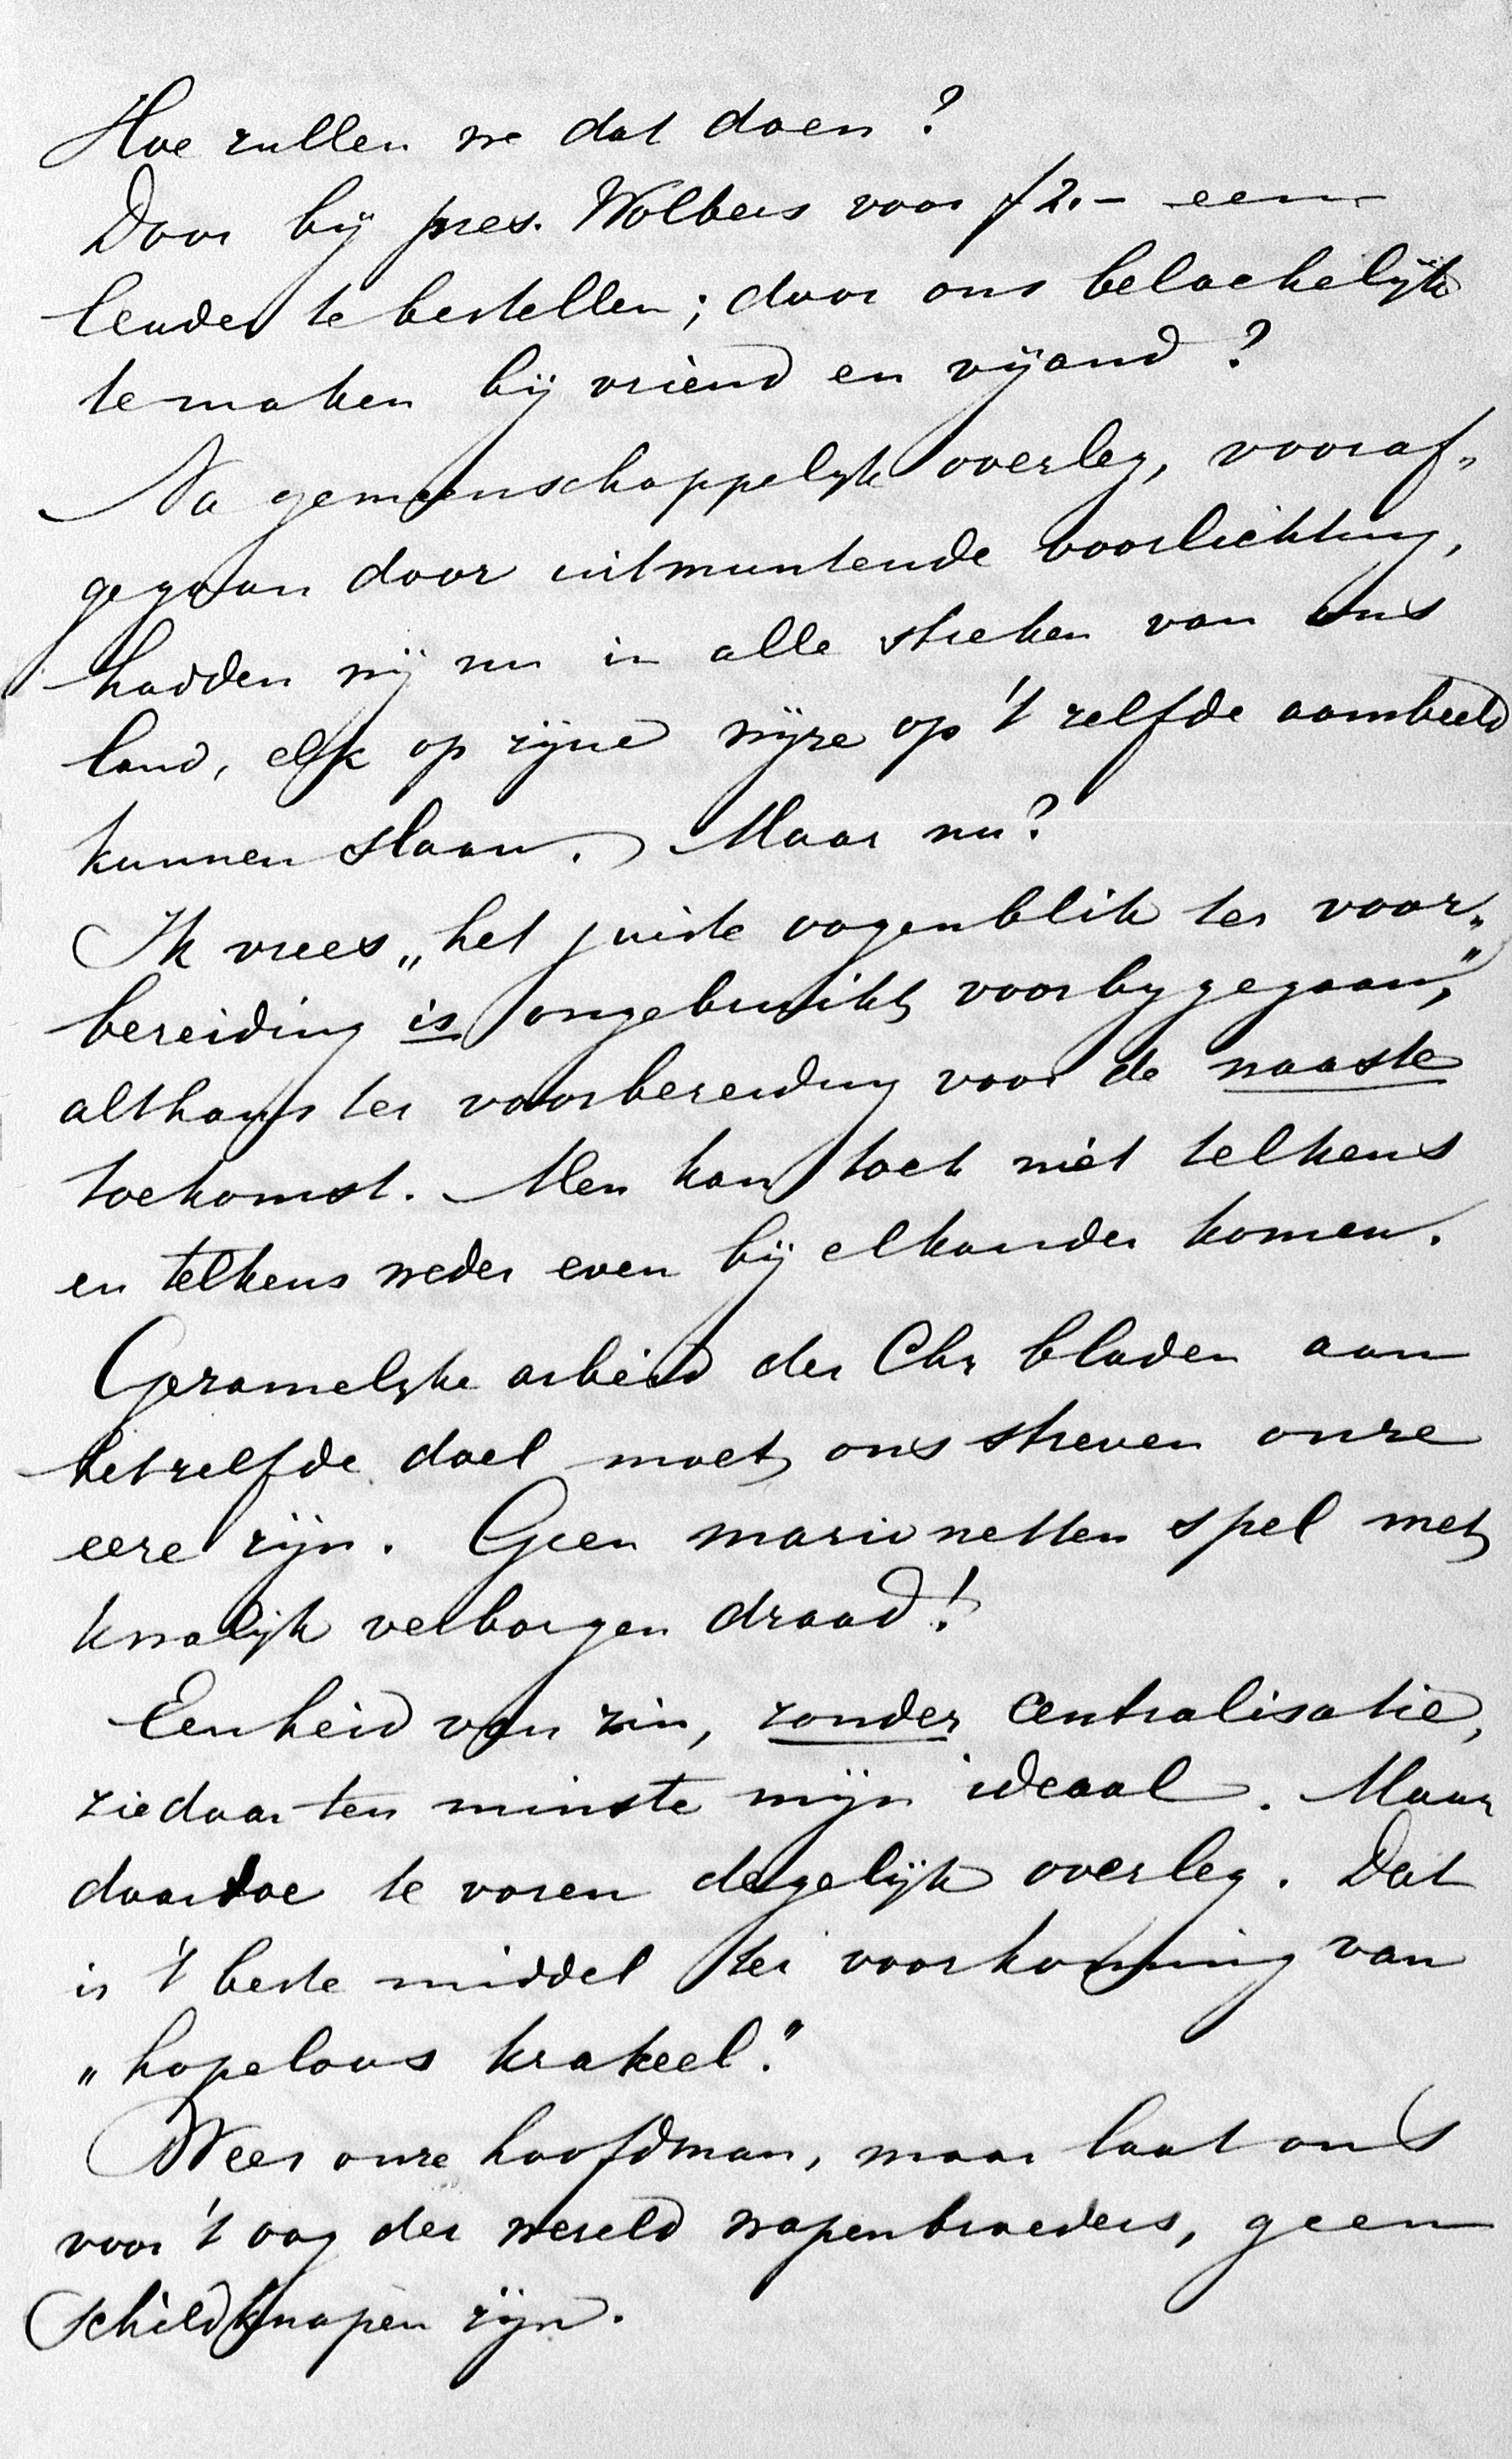 Hoe zullen we dat doen?
Door bij pres. Wolbers voor f 2.- een
leader te bestellen; door ons belachelijk
te maken bij vriend en vijand?
Na gemeenschappelijk overleg, vooraf-
gegaan door uitmuntende voorlichting,
hadden wij nu in alle streken van ons
land, elk op zijne wijze op 't zelfde aambeeld
kunnen slaan. Maar nu?
Ik vrees „het juiste oogenblik ter voor-
bereiding is ongebruikt voorbijgegaan",
althans ter voorbereiding voor de naaste
toekomst. Men kan toch niet telkens
en telkens weder even bij elkander komen.
Gezamelijke arbeid der Chr bladen aan
hetzelfde doel moet ons streven onze
eere zijn. Geen marionetten spel met
kwalijk verborgen draad!
Eenheid van zin, zonder centralisatie,
ziedaar ten minste mijn ideaal. Maar
daartoe te voren degelijk overleg. Dat
is 't beste middel ter voorkoming van
„hopeloos krakeel."
Wees onze hoofdman, maar laat ons
voor 't oog der wereld wapenbroeders, geen
schildknapen zijn.